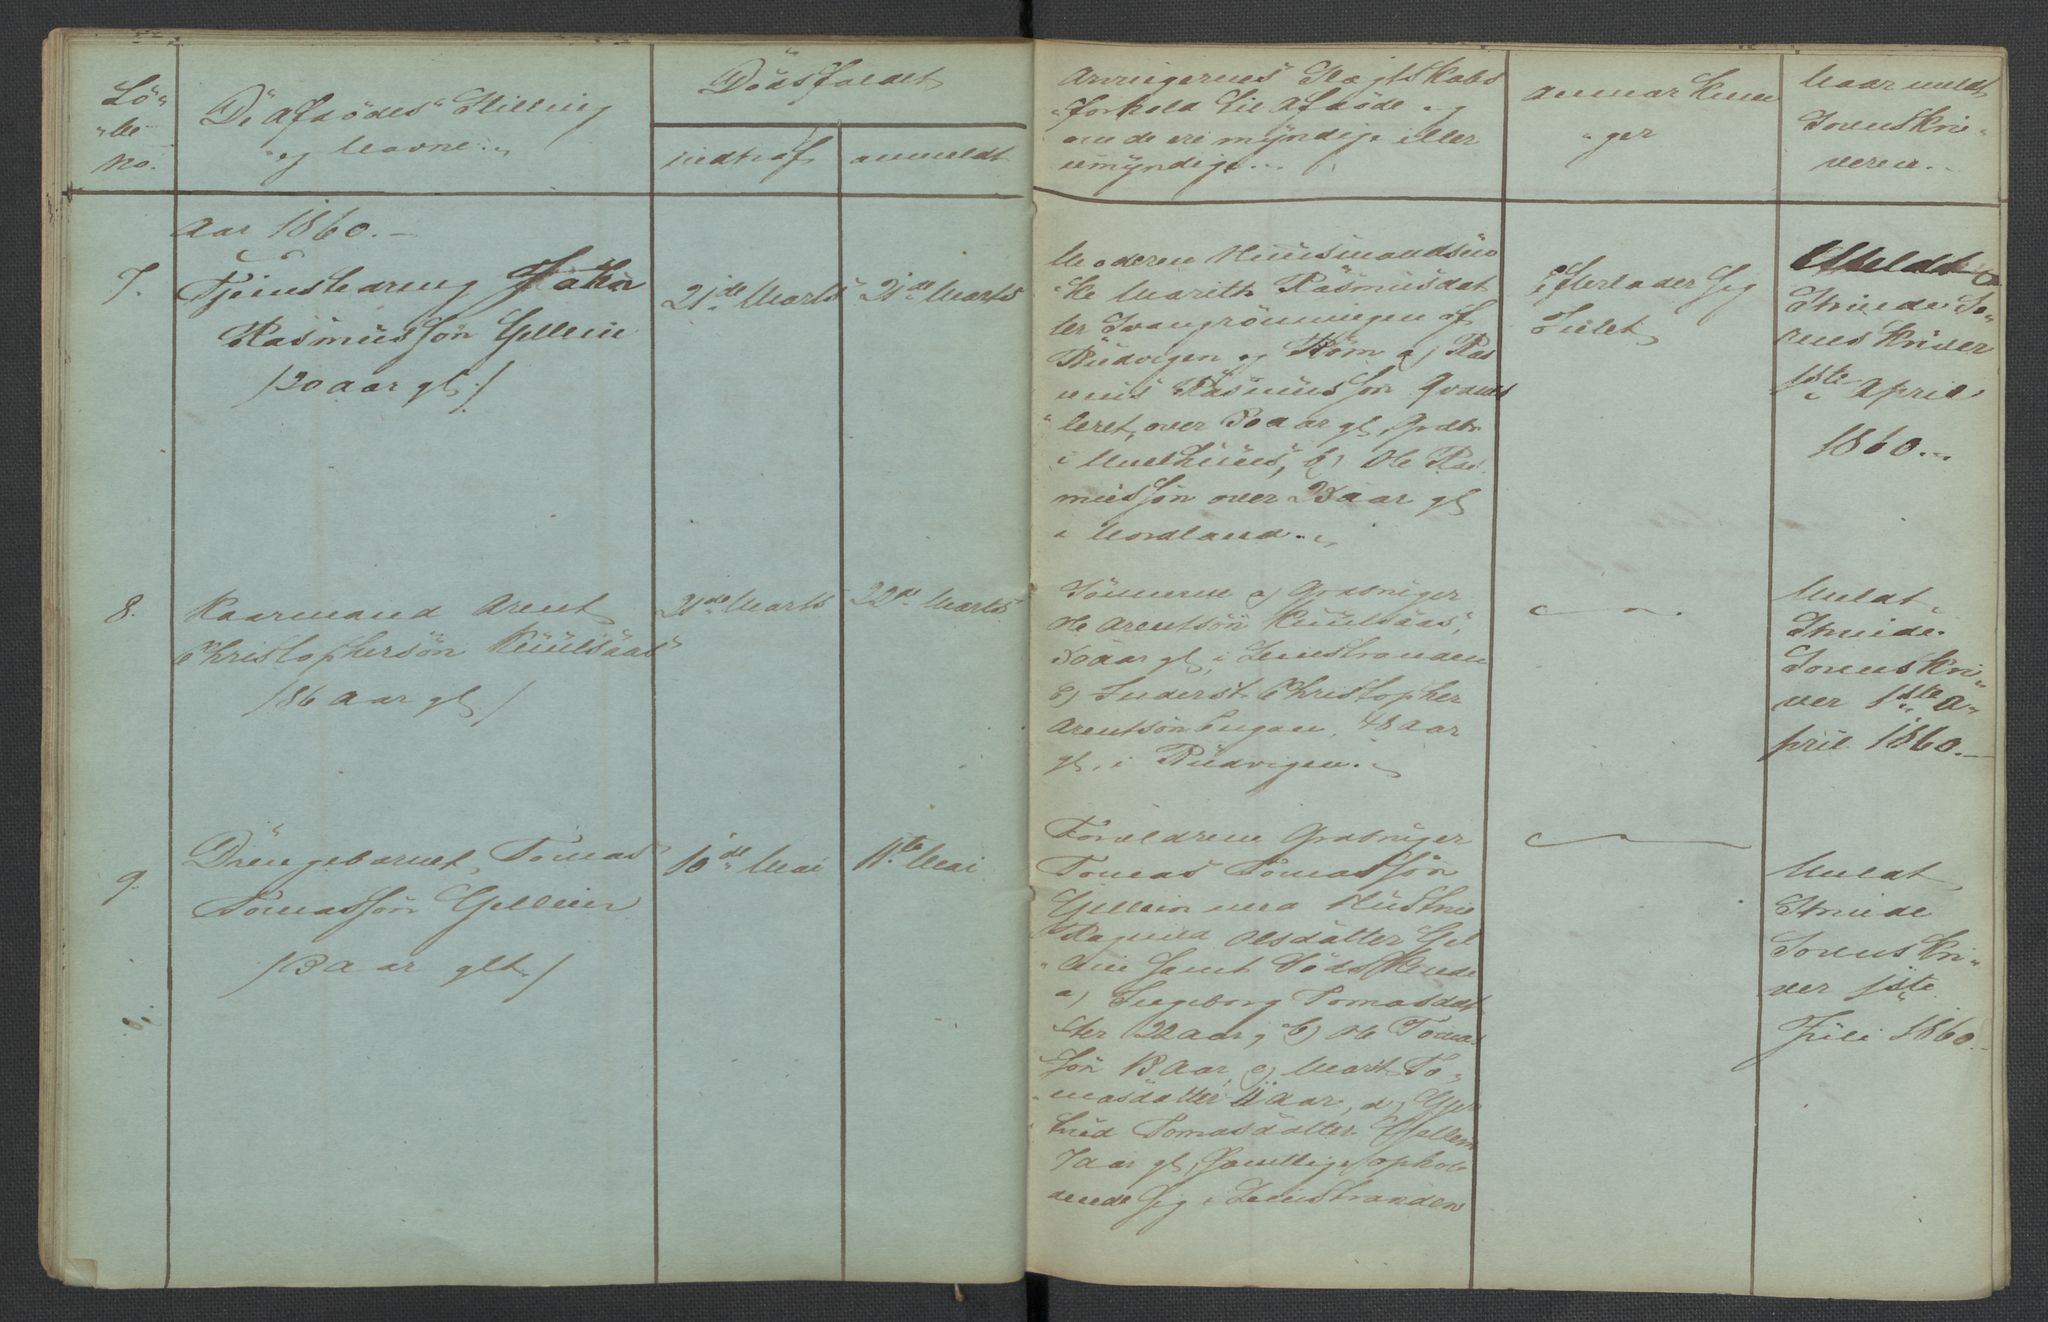 Lö"
"be
No.
De Afdödes" Stilling
"og Navne."
Dödsfaldet
indtraf
anmeldt
Arvingernes Slægtskabs
"forhold til Afdöde og
om de ere myndige eller
umyndige..
Anmærknin
"ger
Naar meldt
Sorenskri"
veren..
Aar 1860.—
7.
Tjenstdreng
Rasmussön Gellein
/20 Aar gl./
21de Marts
21de Marts
Moderen Huusmandsen
"ke Marith Rasmusdat
ter Svangrönningen af
Rudvigen og Kröm a) Ras
mus Rasmussön Qvams
"leret, over 30 Aar gl. Grdbr.
i Melhuus, b) Ole Ras
mussön over 23 Aar gl
i Nordland..
Efterlader Sig
Intet
Meldt
Strinde So"
renskriver
1ste April
1860...
8.
Kaarmand Arent
Christophersön Kuulsaas
/86 Aar gl./
21de Marts
22de Marts
Sönnerne a) Grdbruger
Ole Arentsön Kuulsaas,
50 Aar gl, i Leinstranden
b) Inderst Christopher
Arentsön Engan, 48 Aar
gl. i Rudvigen..
Meldt
Strinde
Sorenskri"
ver 1ste A"
pril 1860.—
9.
Drengebarnet Tomas
Tomassön Gellein
/13 Aar glt./
10de Mai
11te Mai
Forældrene Grdbruger
Tomas Tomassön
Gellein med Hustrue
Ragnild Olsdatter Gel
"lein samt Södskende
a) Ingeborg Tomasdat
ter 22 Aar gl b) Ole Tomas
sön 18 Aar, c) Marit To"
"masdatter 11 Aar, d) Gjer
trud Tomasdatter Gellein
7 Aar gl, Samtlige ophol
dende Sig i Leinstranden
Meldt
Strinde
Sorenskri"
ver 1ste
Juli 1860.